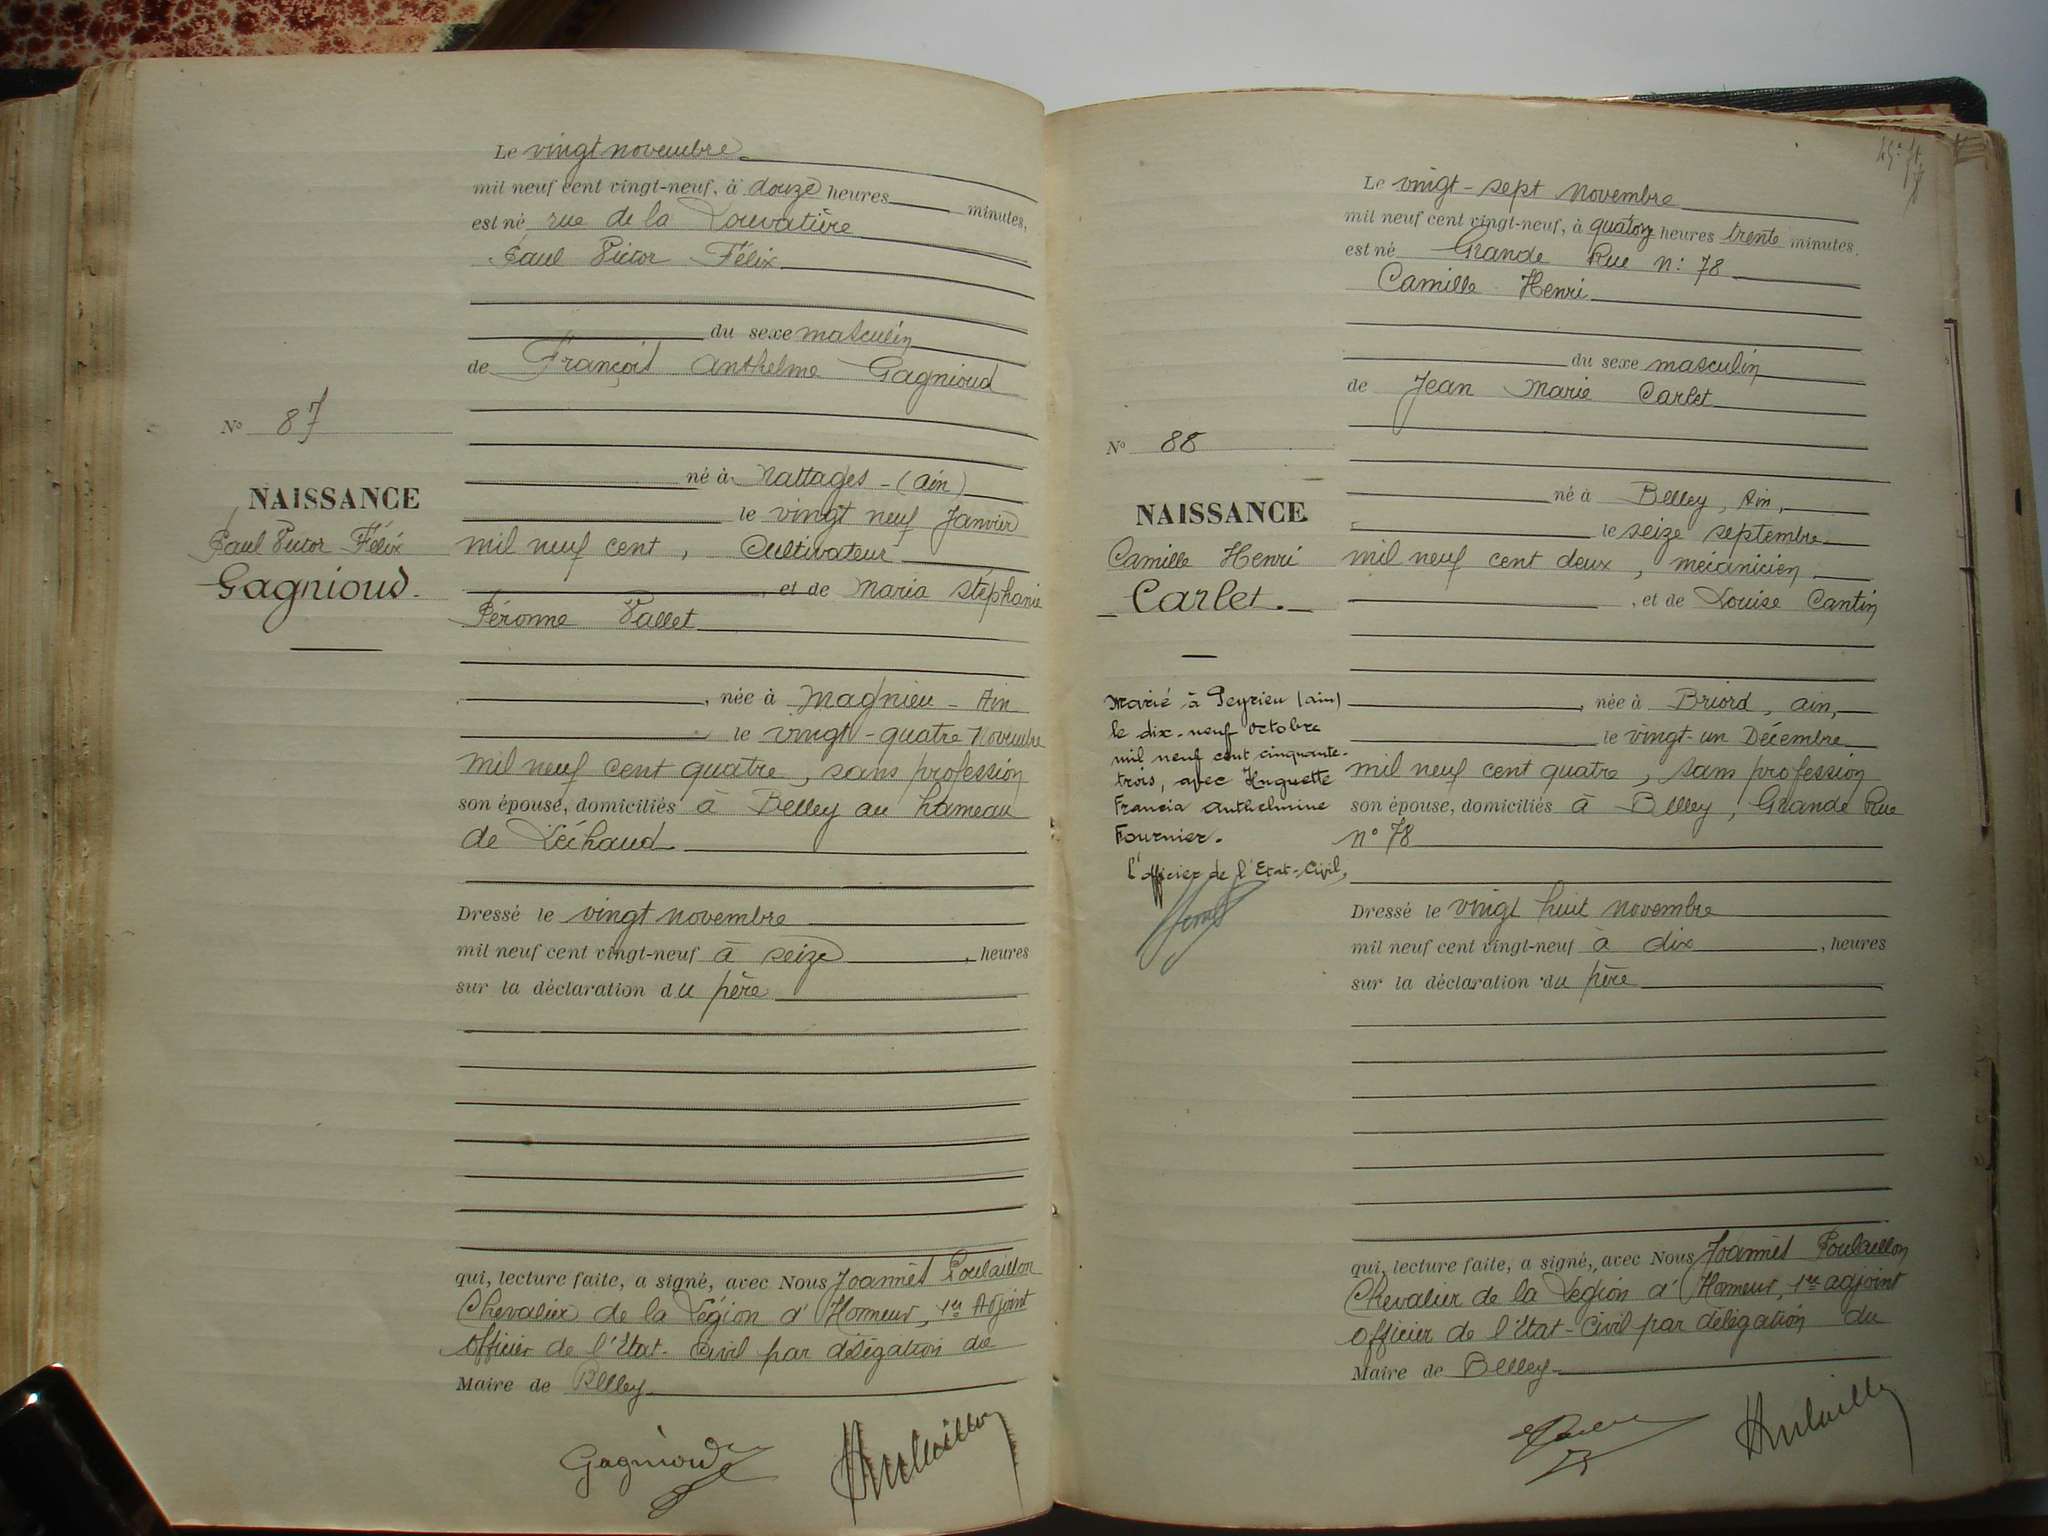 Le vingt novembre
mil neuf cent vingt-neuf, à douze heures minutes,
est né rue de la Louvatière
Paul Victor Félix
du sexe masculin
de François Anthelme Gagnioud
né à Nattages - (Ain)
le vingt neuf Janvier
mil neuf cent, Cultivateur
, et de Maria Stéphanie
Péronne Vallet
, née à Magnieu - Ain
le vingt-quatre Novembre
mil neuf cent quatre, sans profession
son épouse, domiciliés à Belley au hameau
de Léchaud
Dressé le vingt novembre
mil neuf cent vingt-neuf à seize , heures
sur la déclaration du père
qui, lecture faite, a signé, avec Nous Joannès Poulaillon
Chevalier de la Légion d'Honneur, 1er Adjoint
Officier de l'Etat-Civil par délégation du
Maire de Belley
Gagnioud
N° 87
NAISSANCE
Paul Victor Félix
Gagnioud.
Le vingt-sept novembre
mil neuf cent vingt-neuf, à quatorz heures trente minutes.
est né Grande Rue N: 78
Camille Henri
du sexe masculin
de Jean Marie Carlet
né à Belley, Ain,
le seize septembre
mil neuf cent deux, mécanicien
, et de Louise Cantin
, née à Briord, ain,
le vingt-un Décembre
mil neuf cent quatre, sans profession
son épouse, domiciliés à Belley, Grande Rue
n° 78
Dressé le vingt huit novembre
mil neuf cent vingt-neuf à dix , heures
sur la déclaration du père
qui, lecture faite, a signé, avec Nous Joannès Poulaillon
Chevalier de la Légion d'Honneur, 1er adjoint
Officier de l'Etat-Civil par délégation du
Maire de Belley
N° 88
NAISSANCE
Camille Henri
Carlet.
Marié à Peyrieu (ain)
le dix-neuf octobre
mil neuf cent cinquante-
trois, avec Huguette
Francia Anthelmine
Fournier.
l'officier de l'Etat-Civil,